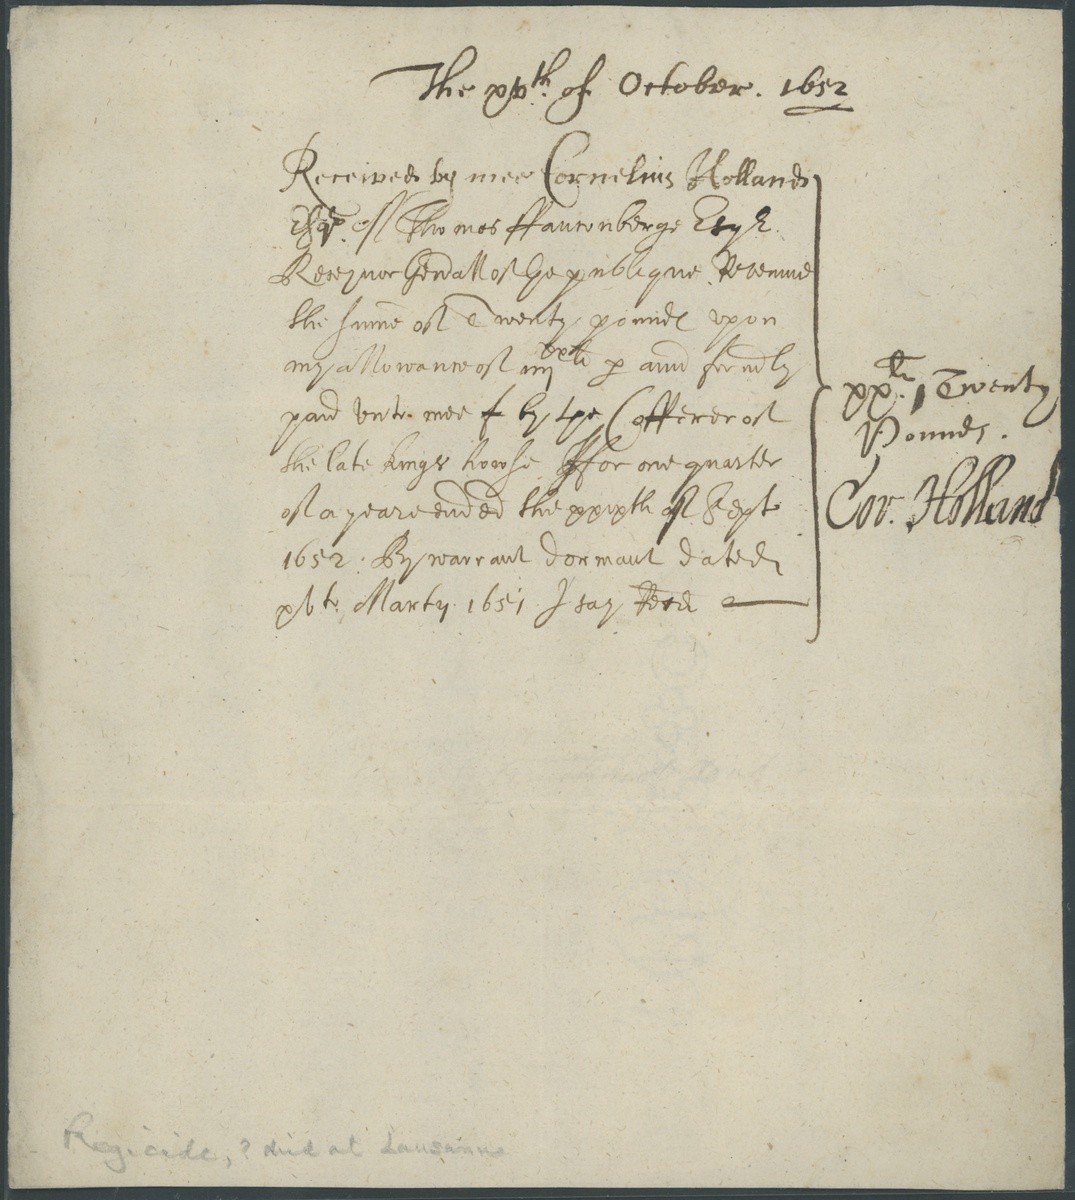 The xxth of October. 1652
Received by mee Cornelius Holland
Esqr. of Thomas ffauconberge Esqr.
Receyvor Genall of the publique Revenue
the sume of Twenty pounds vpon
my allowance of iiijxxli p ann formerly
paid vnto mee by the Cofferer of
the late kings howse ffor one quarter
of a yeare ended the xxixth of Sept
1652. By warrant dormant dated
xvto Marty. 1651 I say Recd
xxli. Twenty
Pounds.
Cor. Holland
Regicide, ? died at Lausanne